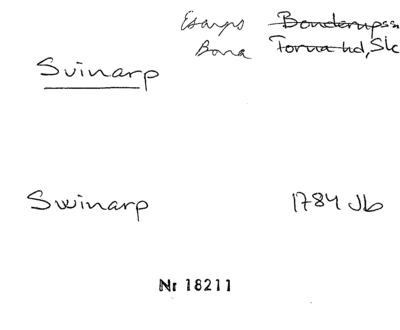 Esarps Bonderupssn
Bara Torna hd, Slc
Svinarp
Swinarp 1784 Jb
Nr 18211